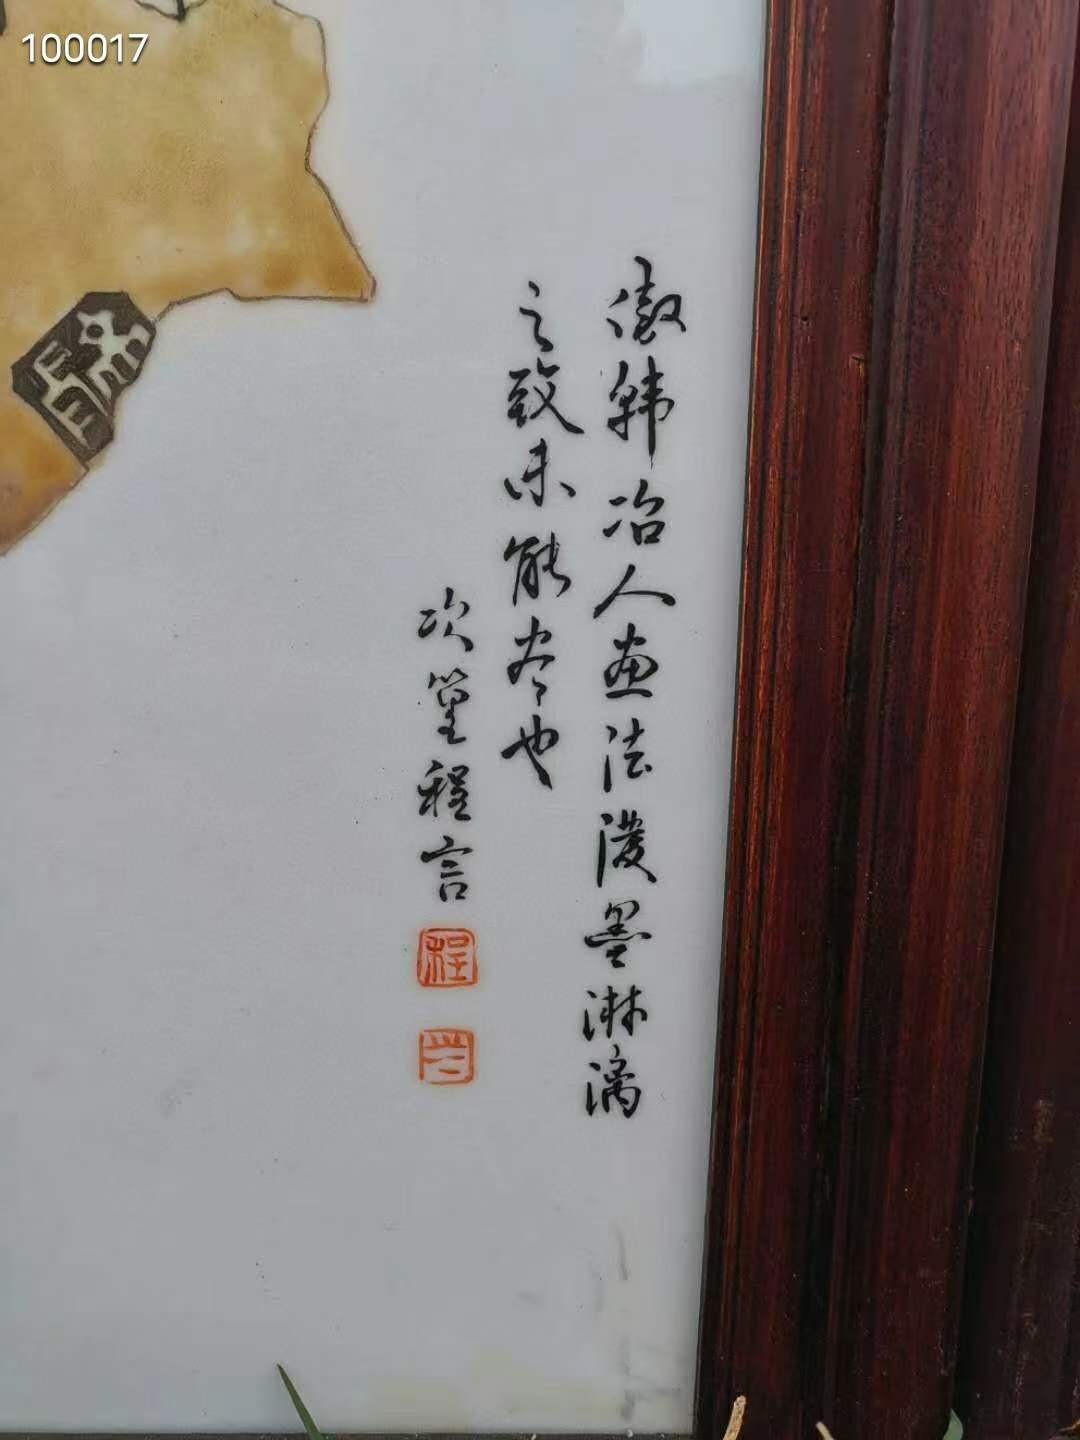 100017
傲韩冶人画法泼墨淋漓
之致未能尽也
次篁程言
程